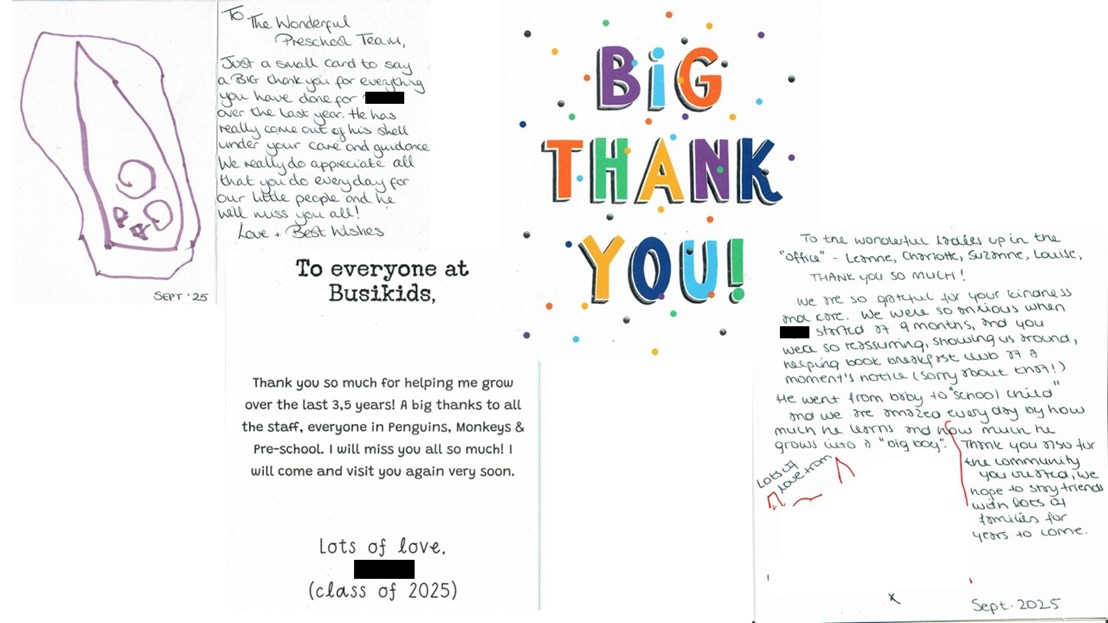 To The Wonderful
Preschool Team,
Just a small card to say
a BIG thank you for everything
you have done for
over the last year. He has
really come out of his shell
under your care and guidance
We really do appreciate all
that you do everyday for
our little people and he
will miss you all!
Love + Best Wishes
SEPT '25
To everyone at
Busikids,
Thank you so much for helping me grow
over the last 3,5 years! A big thanks to all
the staff, everyone in Penguins, Monkeys &
Pre-school. I will miss you all so much! I
will come and visit you again very soon.
Lots of love,
(class of 2025)
BiG
THANK
YOU!
To the wonderful ladies up in the
"office" - Leanne, Charlotte, Suzanne, Louise,
THANK YOU SO MUCH!
We are so grateful for your kindness
and care. We were so anxious when
started at 9 months, and you
were so reassuring, showing us around,
helping book breakfast club at a
moment's notice (sorry about that!)
He went from baby to "school child"
and we are amazed every day by how
much he learns and how much he
grows into a "big boy". Thank you also for
the community
you created, we
hope to stay friends
with lots of
families for
years to come.
Lots of
love from
x
Sept. 2025